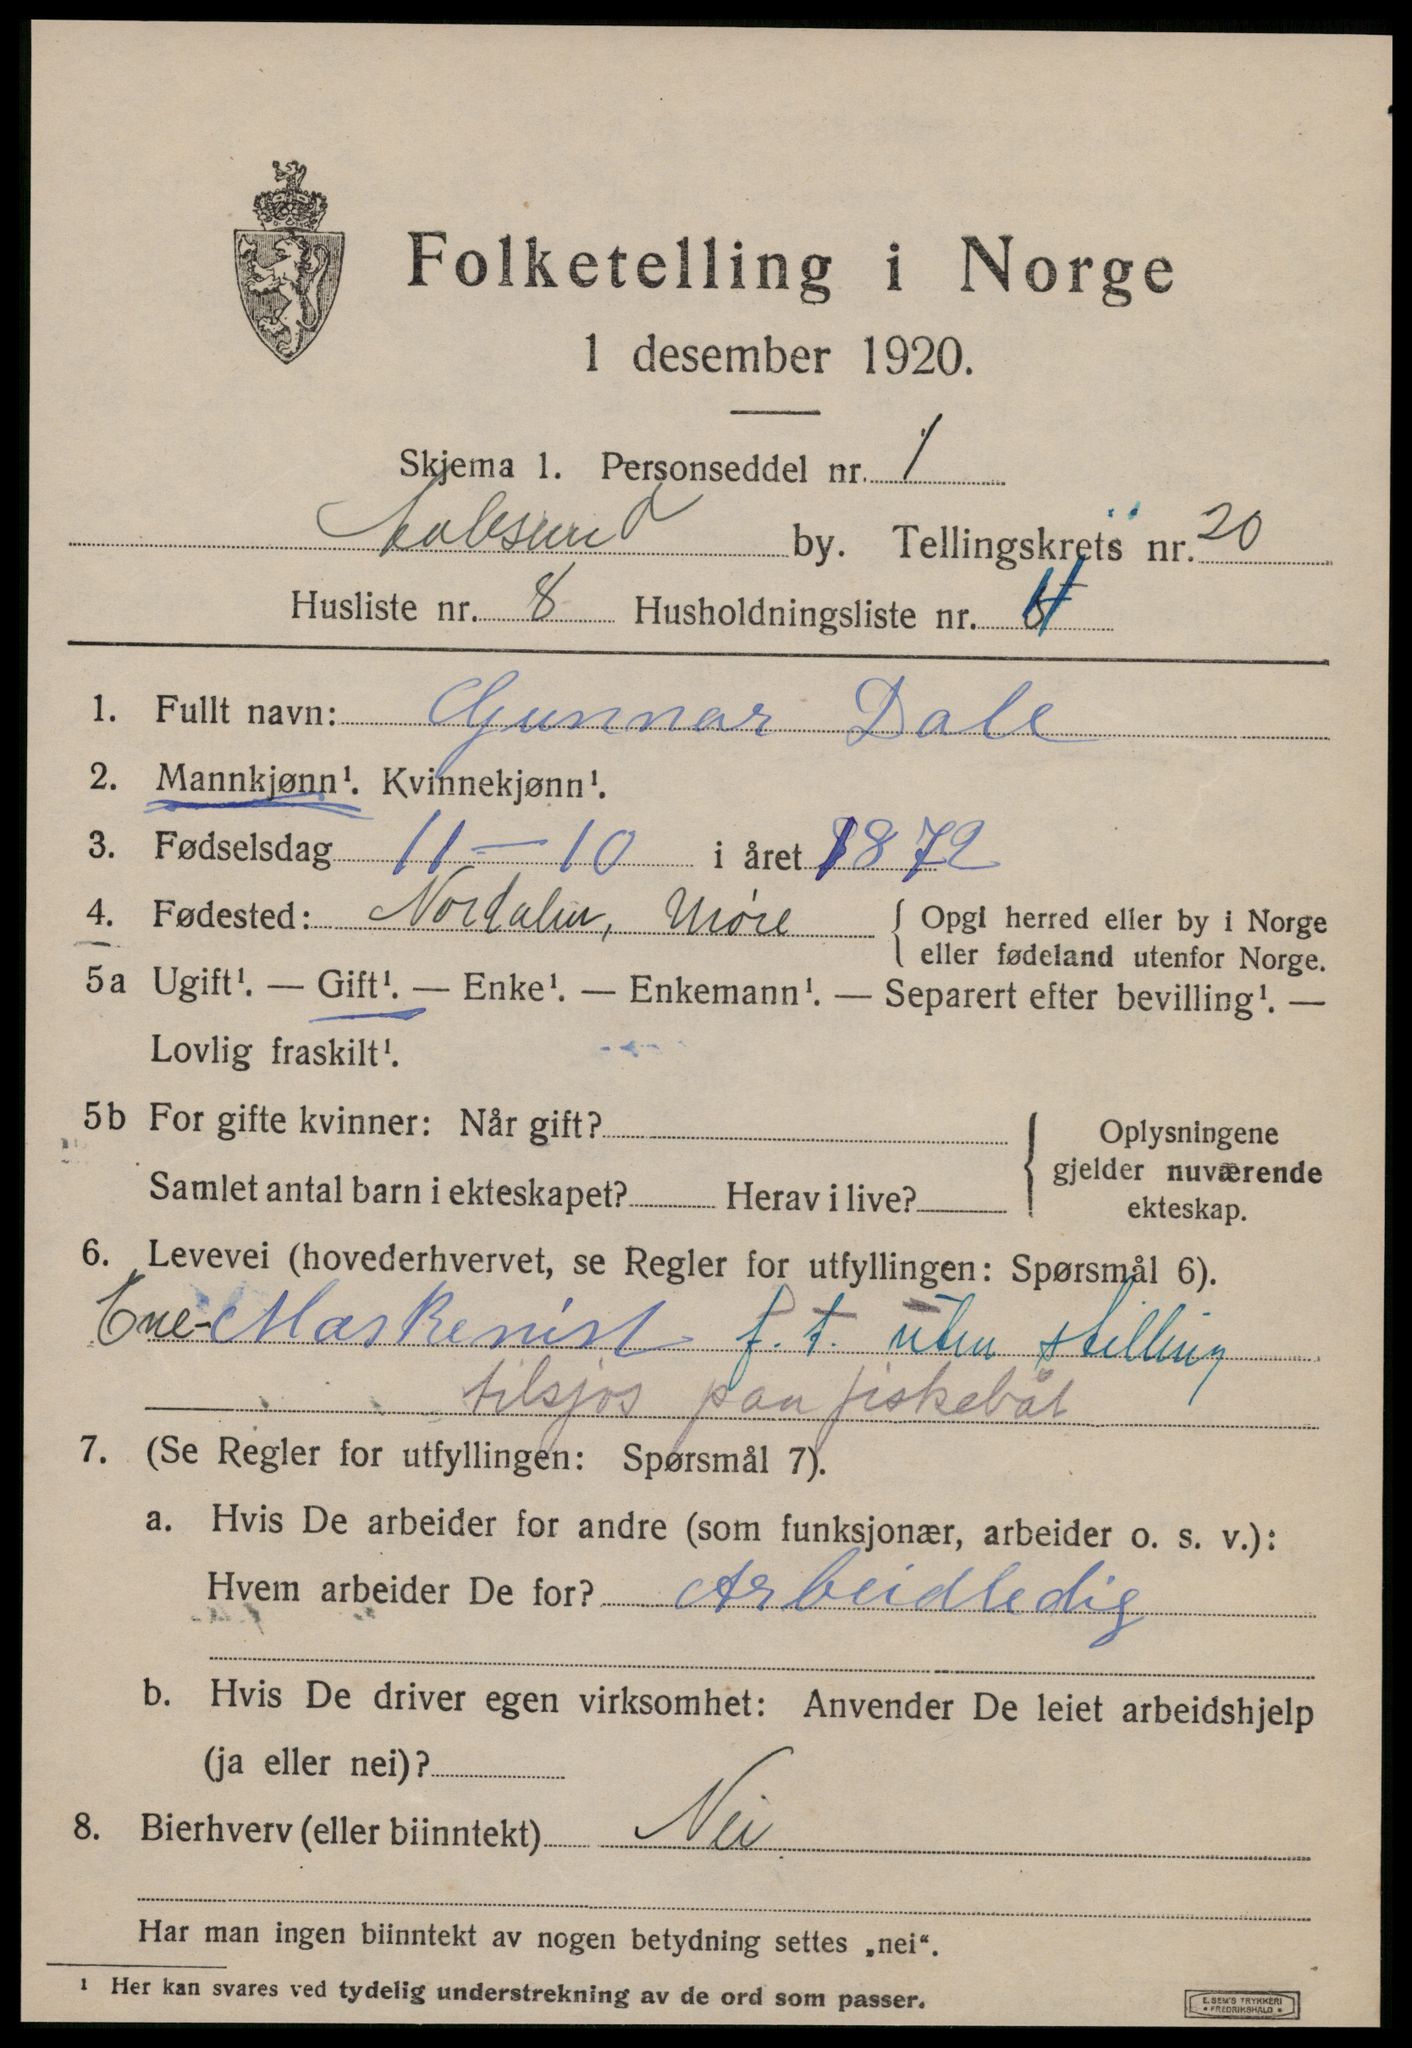 Folketelling i Norge
1 desember 1920.
Skjema 1. Personseddel nr. 1
Aalesund by. Tellingskrets nr. 20
Husliste nr. 8 Husholdningsliste nr.
1. Fullt navn: Gunnar Dale
2. Mannkjønn¹. Kvinnekjønn¹.
3. Fødselsdag 11-10 i året 1872
4. Fødested: Nordalen, Møre { Opgi herred eller by i Norge
eller fødeland utenfor Norge.
5a Ugift¹. — Gift¹. — Enke¹. — Enkemann¹. — Separert efter bevilling¹. —
Lovlig fraskilt¹.
5b For gifte kvinner: Når gift? { Oplysningene
gjelder nuværende
Samlet antal barn i ekteskapet? Herav i live?
ekteskap.
6. Levevei (hovederhvervet, se Regler for utfyllingen: Spørsmål 6).
Ene-Maskenist f. t. uten stilling
tilsjos paa fiskebåt
7. (Se Regler for utfyllingen: Spørsmål 7).
a. Hvis De arbeider for andre (som funksjonær, arbeider o. s. v.):
Hvem arbeider De for? Arbeidledig
b. Hvis De driver egen virksomhet: Anvender De leiet arbeidshjelp
(ja eller nei)?
8. Bierhverv (eller biinntekt) Nei
Har man ingen biinntekt av nogen betydning settes „nei“.
¹ Her kan svares ved tydelig understrekning av de ord som passer.
E. SEM'S TRYKKERI
• FREDRIKSHALD •